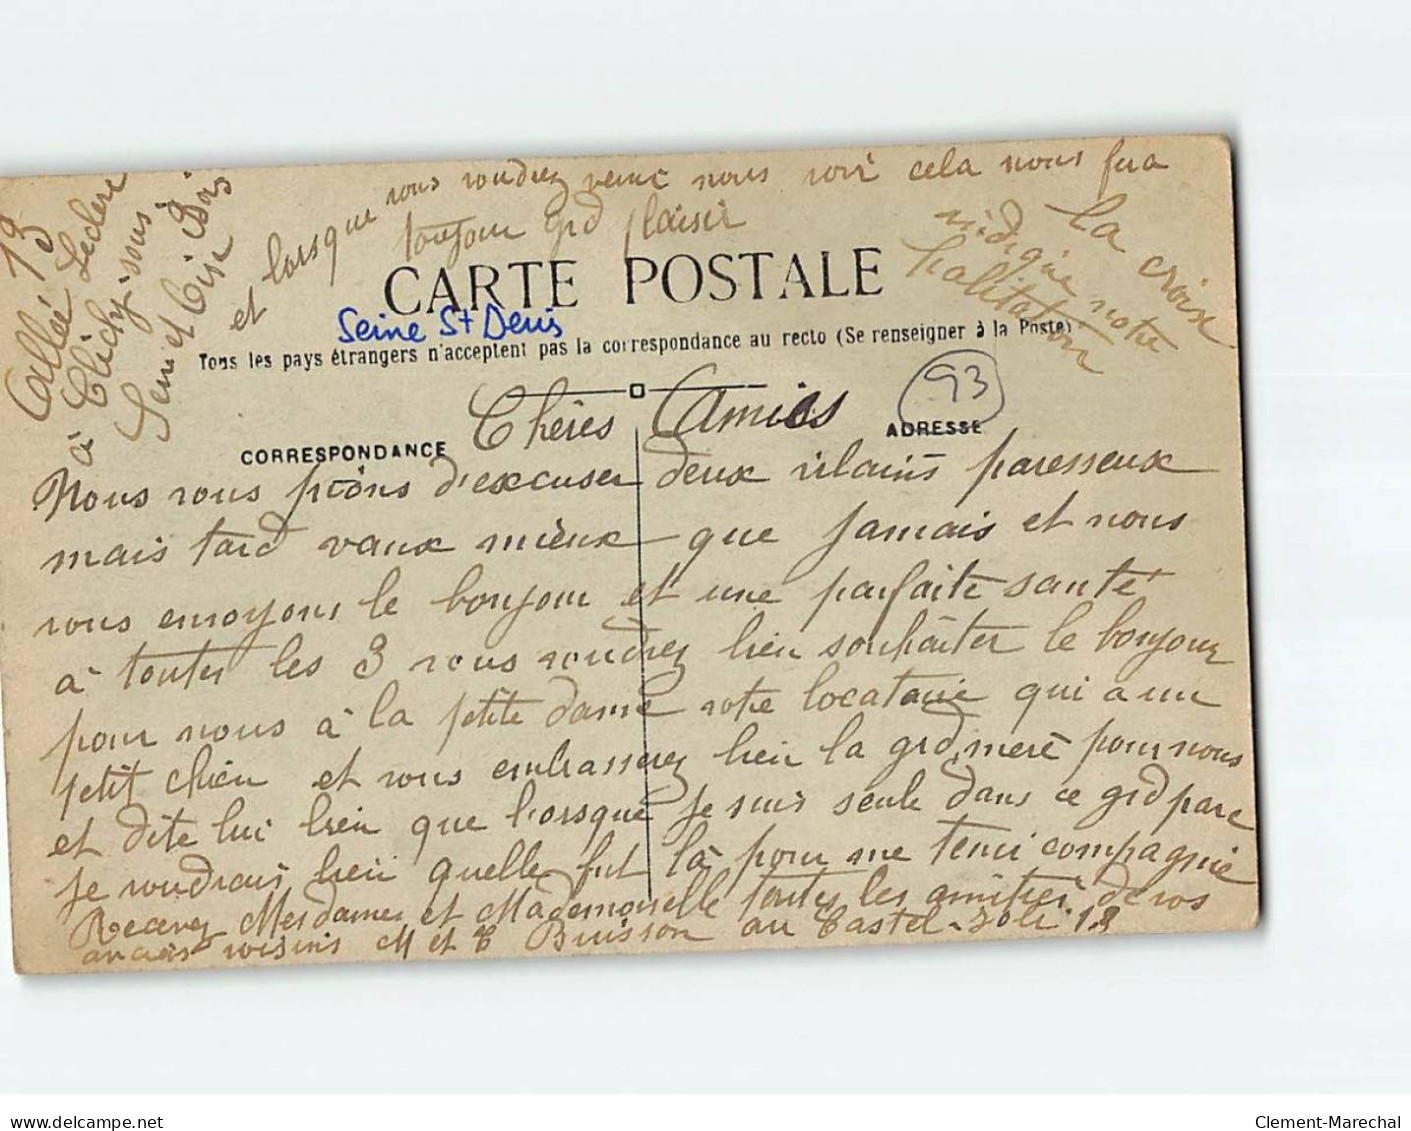 et lorsque vous voudrez venir nous voir cela nous fera
toujour grd plaisir
La croix
indique notre
habitation
CARTE POSTALE
Seine St Denis
Tous les pays étrangers n'acceptent pas la correspondance au recto (Se renseigner à la Poste)
93
CORRESPONDANCE
ADRESSE
Chères Amies
Nous vous prions d'excuser deux vilains paresseux
mais tard vaux mieux que jamais et nous
vous envoyons le bonjour et une parfaite santé
à toutes les 3 vous voudrez bien souhaiter le bonjour
pour nous à la petite dame votre locataire qui a un
petit chien et vous embrasserez bien la grd mere pour nous
et dite lui bien que lorsque je suis seule dans ce grd parc
je voudrais bien quelle fut là pour me tenir compagnie
Recevez Mesdames et Mademoiselle toutes les amitiés de vos
anciens voisins M et C Buisson au Castel-Joli 13
Allée Leclerc
à Clichy-sous-Bois
Seine et Oise
delcampe.net
Clement-Marechal